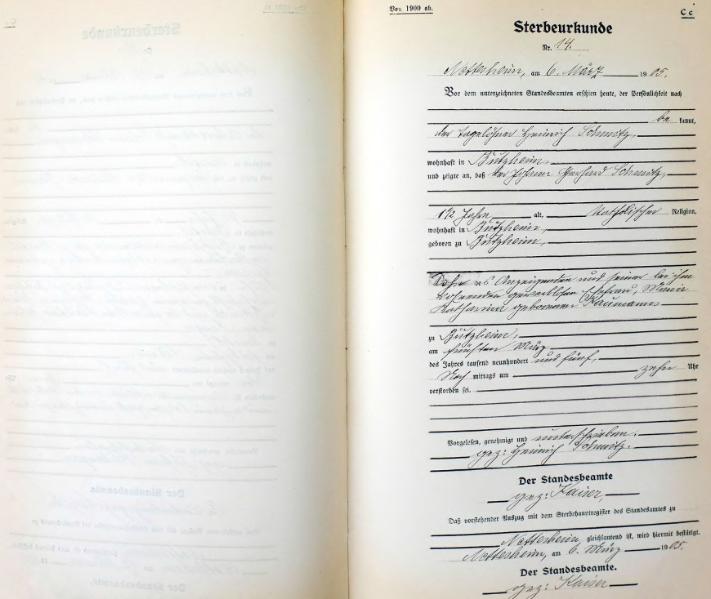 Vor. 1900 ab.
C c
Sterbeurkunde
Nr. 14.
Nettesheim, am 6. März 1905.
Vor dem unterzeichneten Standesbeamten erschien heute, der Persönlichkeit nach
be kannt,
der Tagelöhner Heinrich Schmitz,
wohnhaft in Butzheim,
und zeigte an, daß der Gerhard Schmitz,
Jahre alt, katholischer Religion,
wohnhaft in Butzheim,
geboren zu Butzheim,
Sohn des Anzeigenden und seiner bei ihm
wohnenden gewerblosen Ehefrau, Maria
Katharina geborenen Baumanns
zu Butzheim,
am fünften März
des Jahres tausend neunhundert und fünf,
Nach mittags um zehn Uhr
verstorben sei.
Vorgelesen, genehmigt und unterschrieben.
gez: Heinrich Schmitz.
Der Standesbeamte
gez: Kaiser,
Daß vorstehender Auszug mit dem Sterbehauptregister des Standesamtes zu
Nettesheim, gleichlautend ist, wird hiermit bestätigt.
Nettesheim, am 6. März 1905.
Der Standesbeamte.
gez: Kaiser